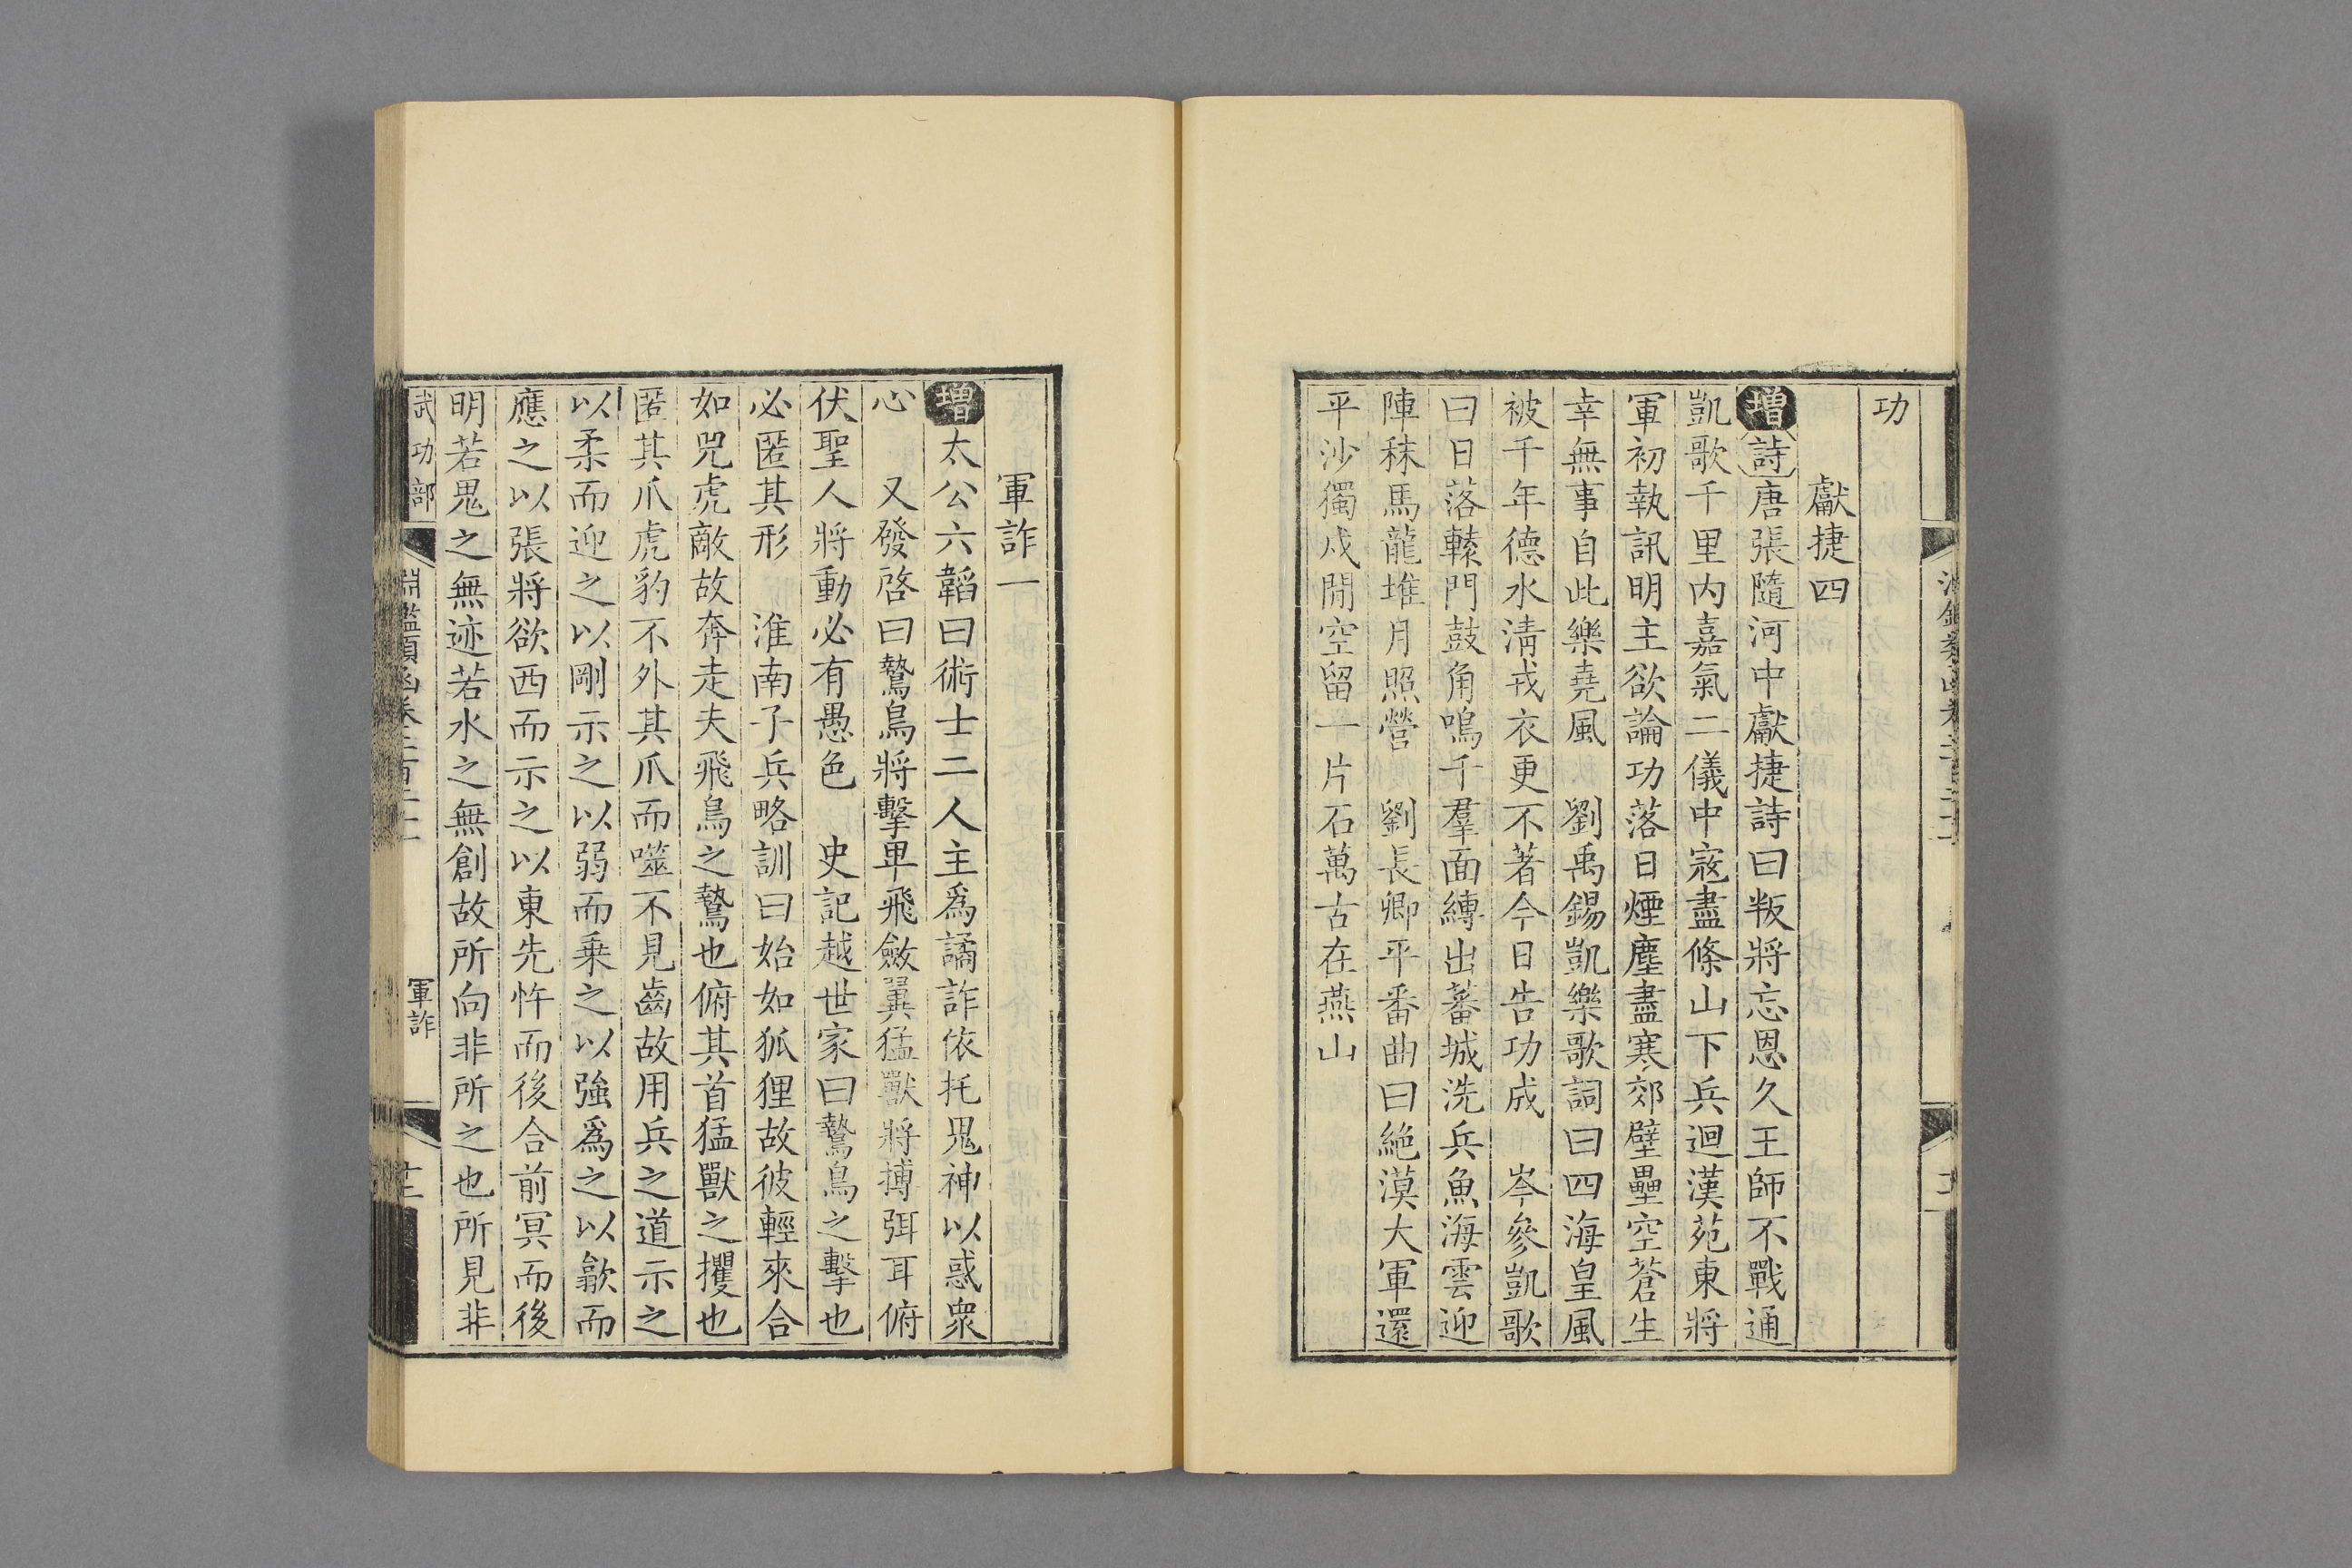 功
獻捷四
增詩唐張隨河中獻捷詩曰叛將忘恩久王師不戰通
凱歌千里內嘉氣二儀中寇盡條山下兵迴漢苑東將
軍初執訊明主欲論功落日煙塵盡寒郊壁壘空蒼生
幸無事自此樂堯風　劉禹錫凱樂歌詞曰四海皇風
被千年德水淸戎衣更不著今日告功成　岑參凱歌
曰日落轅門鼓角鳴千羣面縛出蕃城洗兵魚海雲迎
陣秣馬龍堆月照營　劉長卿平番曲曰絕漠大軍還
平沙獨戍閒空留一片石萬古在燕山
軍詐一
增太公六韜曰術士二人主爲譎詐依托鬼神以惑衆
心　又發啓曰鷙鳥將擊卑飛斂翼猛獸將搏弭耳俯
伏聖人將動必有愚色　史記越世家曰鷙鳥之擊也
必匿其形　淮南子兵略訓曰始如狐狸故彼輕來合
如兕虎敵故奔走夫飛鳥之鷙也俯其首猛獸之攫也
匿其爪虎豹不外其爪而噬不見齒故用兵之道示之
以柔而迎之以剛示之以弱而乗之以強爲之以歙而
應之以張將欲西而示之以東先忤而後合前冥而後
明若鬼之無迹若水之無創故所向非所之也所見非
武功部
淵鑑類函卷二百二十
軍詐